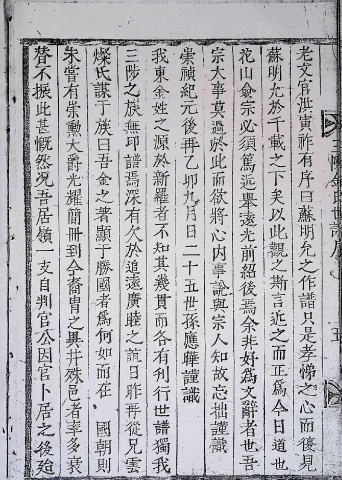 老文官洪寅祚有序曰蘇明允之作譜只是孝悌之心而復見
蘇明允於千載之下矣以此觀之斯言近之而正爲今日道也
花山金宗必須篤近舉遠光前紹後焉余非好爲文辭者世吾
宗大事莫過於此而欲將心内事說與宗人知故忘拙謹識
崇禎紀元後再乙卯九月日二十五世孫應韡謹識
我東金姓之源於新羅者不知其幾貫而各有利行世譜獨我
三陟之族無印譜焉深有欠於追遠廣睦之誼日昨再從兄雲
燦氏謀于族曰吾金之著顯于勝國者爲何如而在 國朝則
朱嘗有崇勳大爵光耀簡冊到今裔胄之異井殊邑者率多衰
替不振此甚慨然況吾居嶺一支自判官公因官卜居之後迨